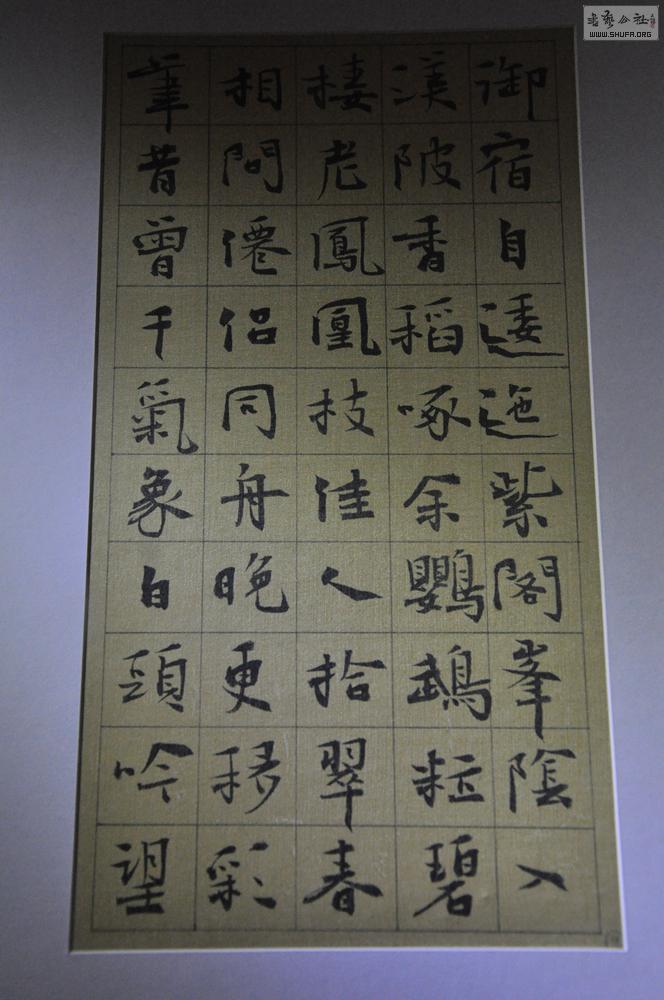 御宿自逶迤紫閣峯陰入
渼陂香稻啄余鸚鵡粒碧
棲老鳳凰枝佳人拾翠春
相問僊侶同舟晚更移彩
筆昔曾干氣象白頭吟望
書藝公社
WWW.SHUFA.ORG